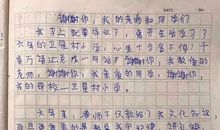 DATE
谢谢你,我的老师和同学们
我马上就要毕业了,离开生活学习了
六年的卫星村小学,心里十分不舍,千
言万语汇成一句话:谢谢你,敬爱的
老师,谢谢你,我亲爱的同学,谢谢你,
我的母校—卫星村小学。
六年里,老师不仅教给了我文化知识